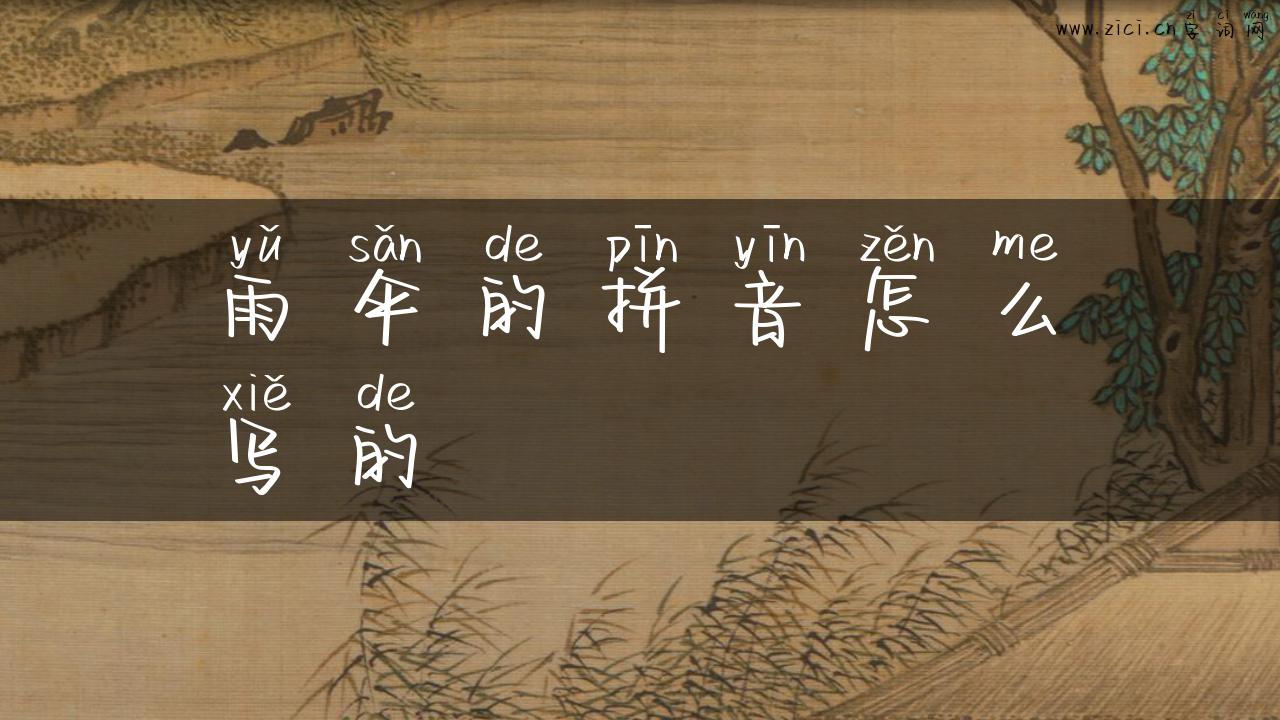 zì cí wǎng
www.zici.cn字词网
yǔ sǎn de pīn yīn zěn me
雨伞的拼音怎么
xiě de
写的